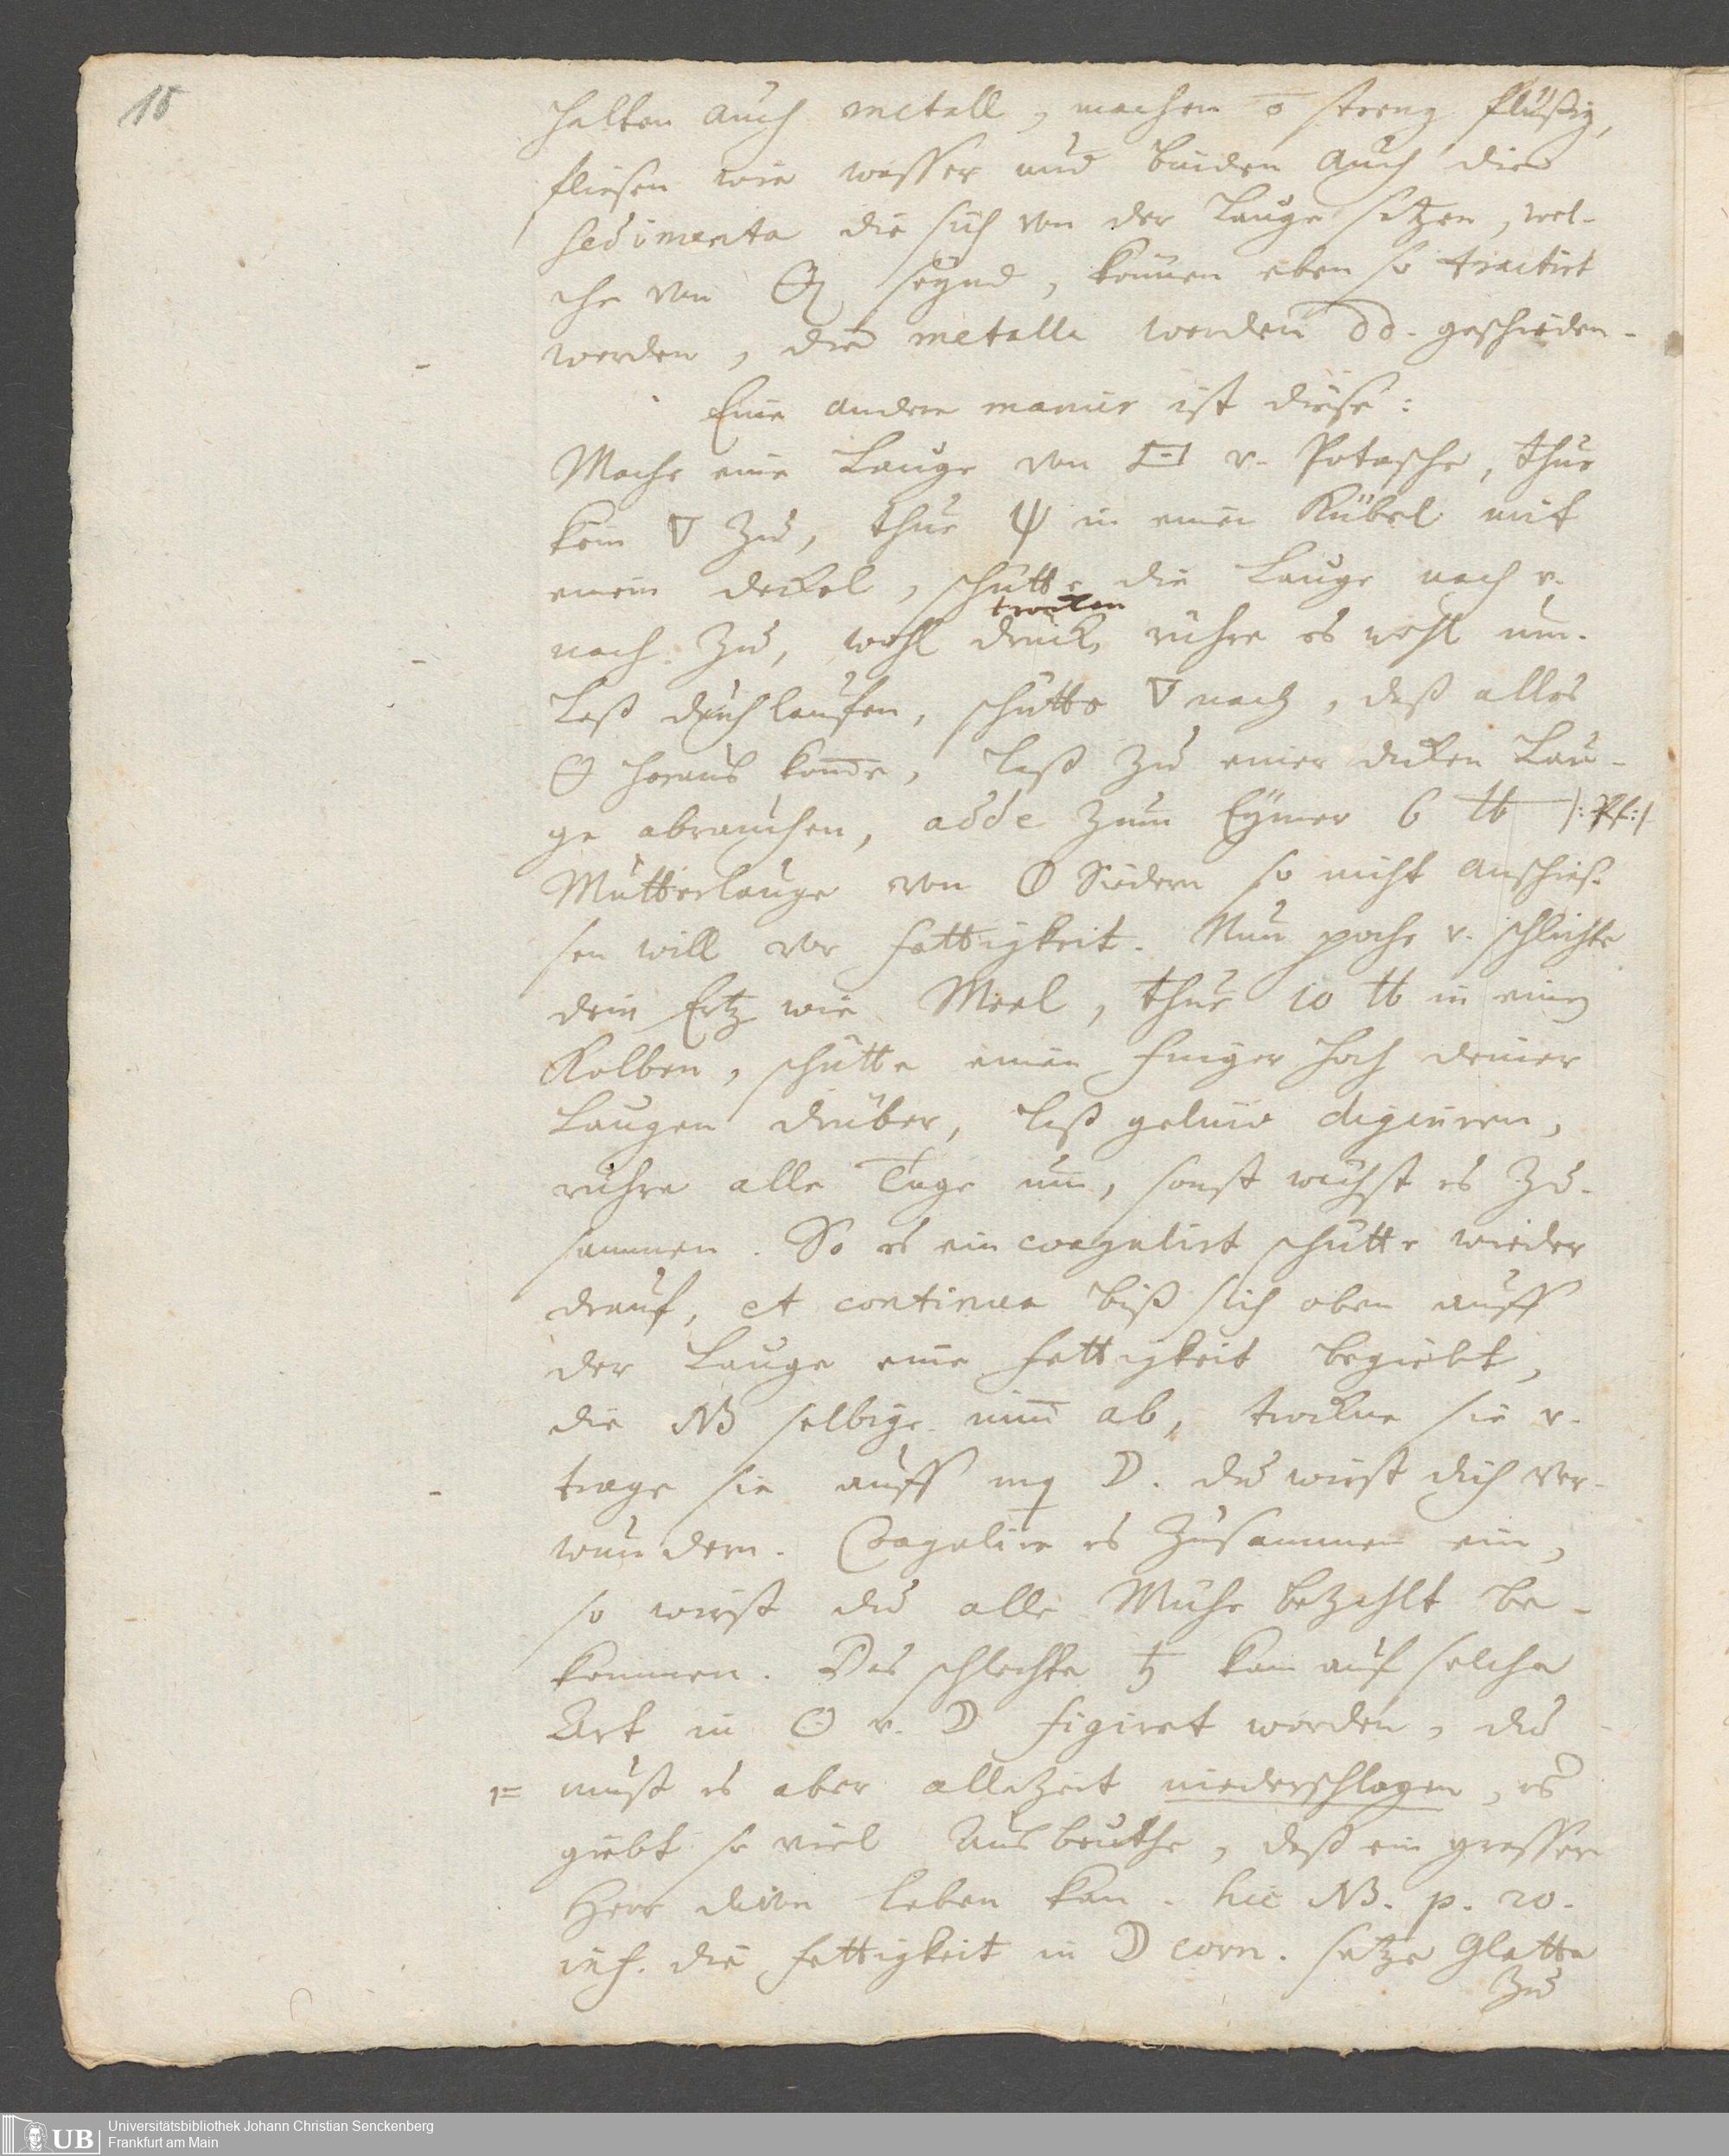 15
halten auch metall, machen o streng flüßig,
fließen wie wasser und binden auch die
sedimenta die sich von der Lauge setzen, wel-
che von seynd, können eben so tractirt
werden, die metalla werden dd. geschieden.
Eine andere manier ist diese:
Mache eine Lauge von v. Potasche, thue
kein 🜄 zu, thue Ψ in einen Kübel mit
einem deckel, schütte die Lauge nach v.
trocken
nach zu, wohl druck, rühre es wohl um.
Laß durchlaufen, schütte 🜄 nach, daß alles
🜔 heraus komme, laß zu einer dicken Lau-
ge abrauchen, adde zum Eymer 6 ℔ /: Pf :/
Mutterlauge von 🜕 Siedern so nicht anschies-
sen will vor fettigkeit. Nun poche v. schlichte
dein Ertz wie Meel, thue 10 ℔ in einen
Kolben, schütte einen finger hoch deiner
Laugen drüber, laß gelind digeriren,
rühre alle Tage um, sonst wächst es zu-
sammen. So es ein coagulirt schütte wieder
drauf, et continua biß sich oben auff
der Lauge eine fettigkeit begiebt,
die NB selbige nim ab, trockne sie v.
trage sie auff ☽. du wirst dich ver-
wundern. Coagulire es zusammen ein,
so wirst du alle Mühe bezahlt be-
kommen. Das schlechte ♄ kan auf solche
Art in ☉ v. ☽ figiret werden, du
1= must es aber allezeit niederschlagen, es
giebt so viel Ausbeuthe, daß ein grosser
Herr davon leben kan. hic NB. p. 20.
inf. die fettigkeit in ☽ corn. setze Glette
zu
UB Universitätsbibliothek Johann Christian Senckenberg
Frankfurt am Main